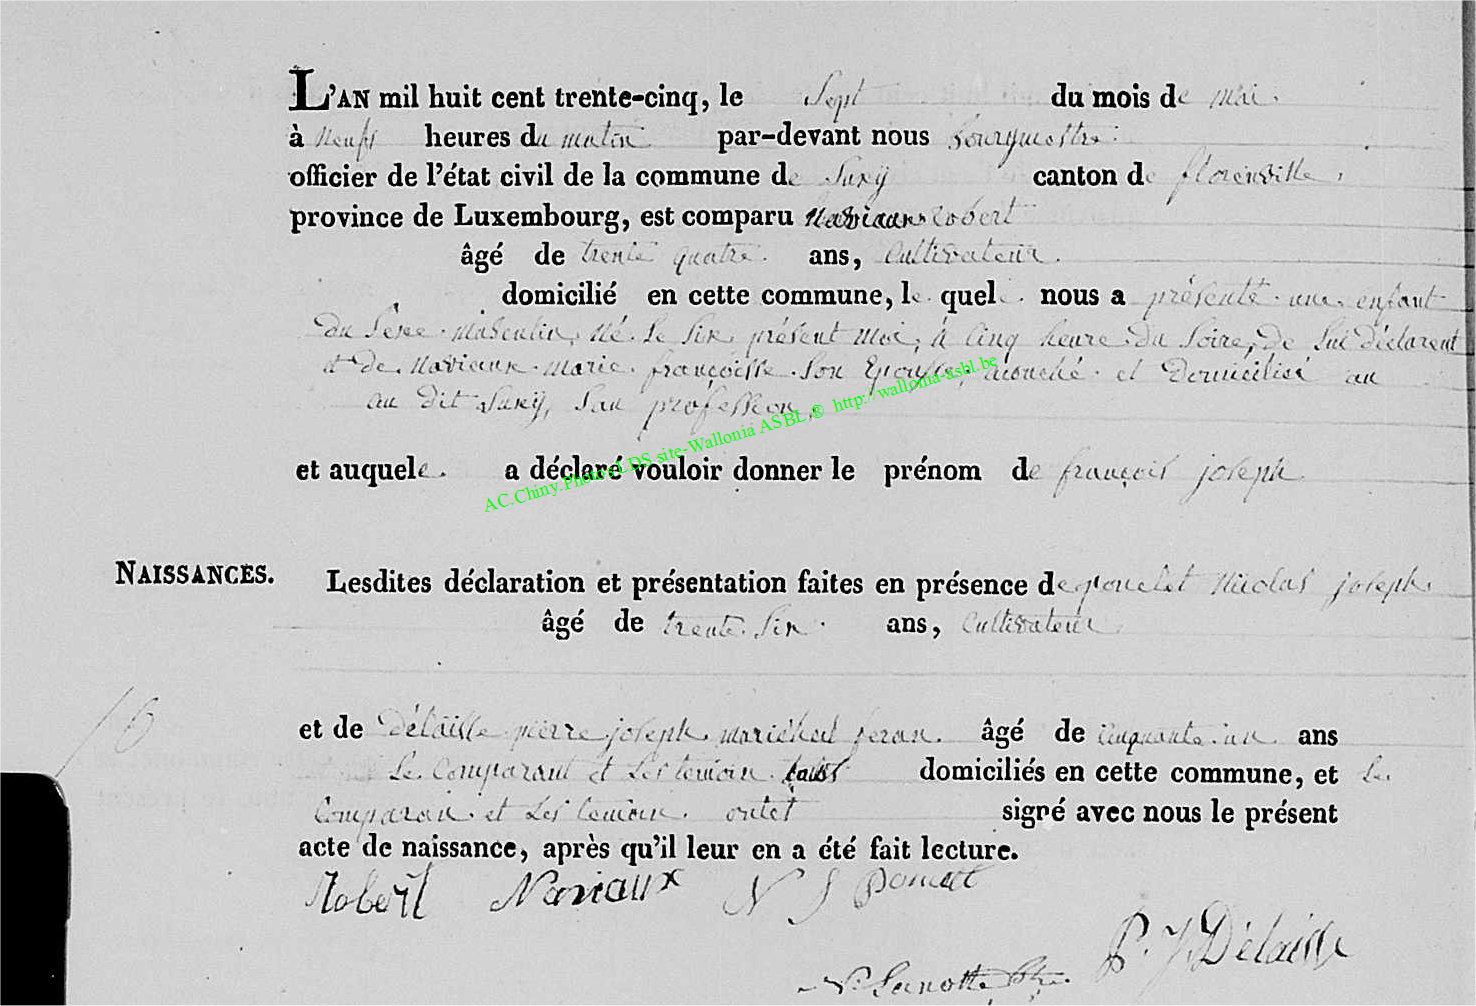 L'AN mil huit cent trente-cinq, le Sept du mois de mai.
à neufs heures du matin par-devant nous bourgmestre
officier de l'état civil de la commune de Suxÿ canton de florenville,
province de Luxembourg, est comparu Naviaux robert
âgé de trente quatre ans, Cultivateur.
domicilié en cette commune, le quel nous a présenté une enfant
du Séxe masculin, né le Six présent moi, à Cinq heure du Soire, de Lui déclarent
et de Naviaux marie françoisse Son Epousse, acouché et Domicilié au
au dit Suxÿ, San profession,
AC.Chiny.Photos LDS site-Wallonia ASBL,® http://wallonia-asbl.be
et auquele a déclaré vouloir donner le prénom de françois joseph
NAISSANCES.
Lesdites déclaration et présentation faites en présence de poncelet Nicolas joseph
âgé de trente Six ans, Cultivateur
16
et de Délaisse pierre joseph mariéchal feran. âgé de cinquante un ans
Le Comparant et Les temoin domiciliés en cette commune, et Le
Comparan et Les temoin ontet signé avec nous le présent
acte de naissance, après qu'il leur en a été fait lecture.
Robert Naviaux N J Poncelet
P. J. Délaisse